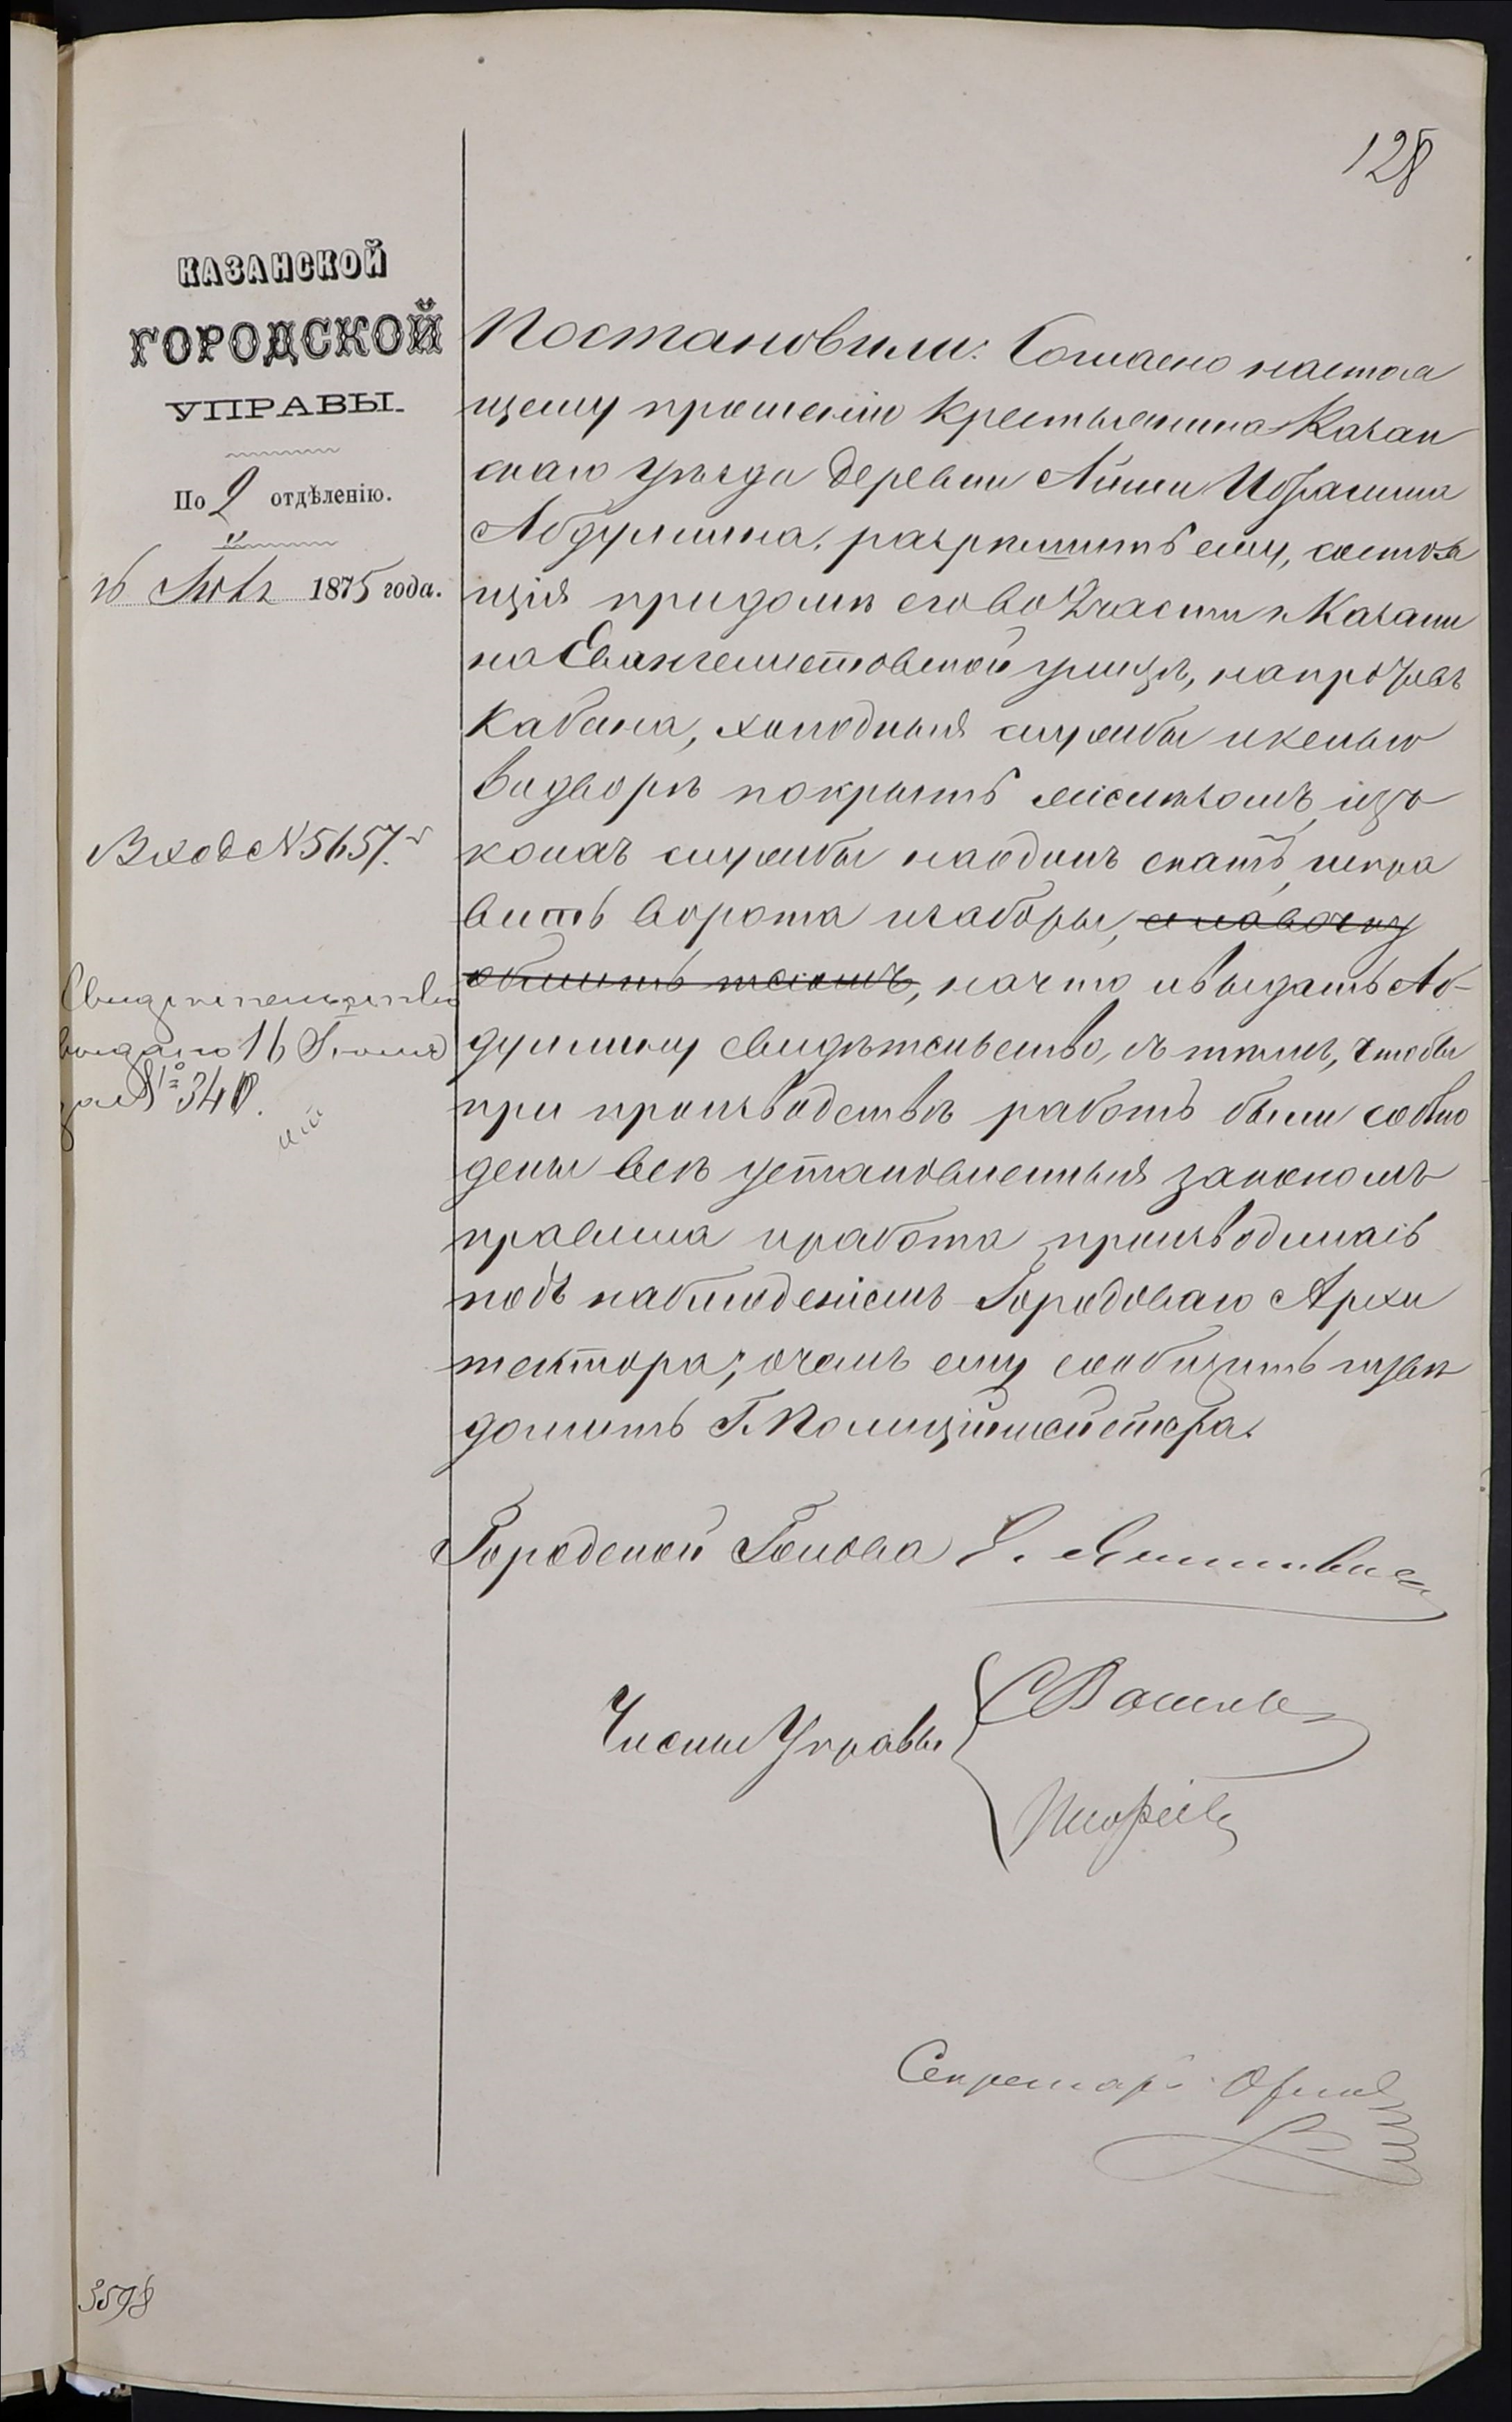 128
КАЗАНСКОЙ
ГОРОДСКОЙ
УПРАВЫ.
По 2 отдѣленію.
16 1875 года.
Вход №5657.
Свидѣтельство
выдано 16 Іюня
за №
Постановили: Согласно настоя
щему прошенію Крестьянина Казан
скаго уѣзда деревни Айши Ибрагима
Абдуллина, разрѣшить ему, состоя
щія при домѣ его во 2 части г. Казани
на Евангелистовской улицѣ, напротивъ
Кабана, холодныя службы и келью
въ дворѣ покрыть желѣзомъ, изъ
коихъ службы на одинъ скатъ, испра
вить ворота и заборы, и лавочку
обшить тесомъ, на что и выдать Аб-
дуллину свидѣтельство, съ тѣмъ, чтобы
при производствѣ работъ были соблю
дены всѣ установленныя закономъ
правила и работа производилась
подъ наблюденіемъ Городоваго Архи
тектора; о чемъ ему сообщить и увѣ
домить Г. Полиціймейстера.
Городской Голова Э. Янишевск
Члены Управы
Секретарь
3598